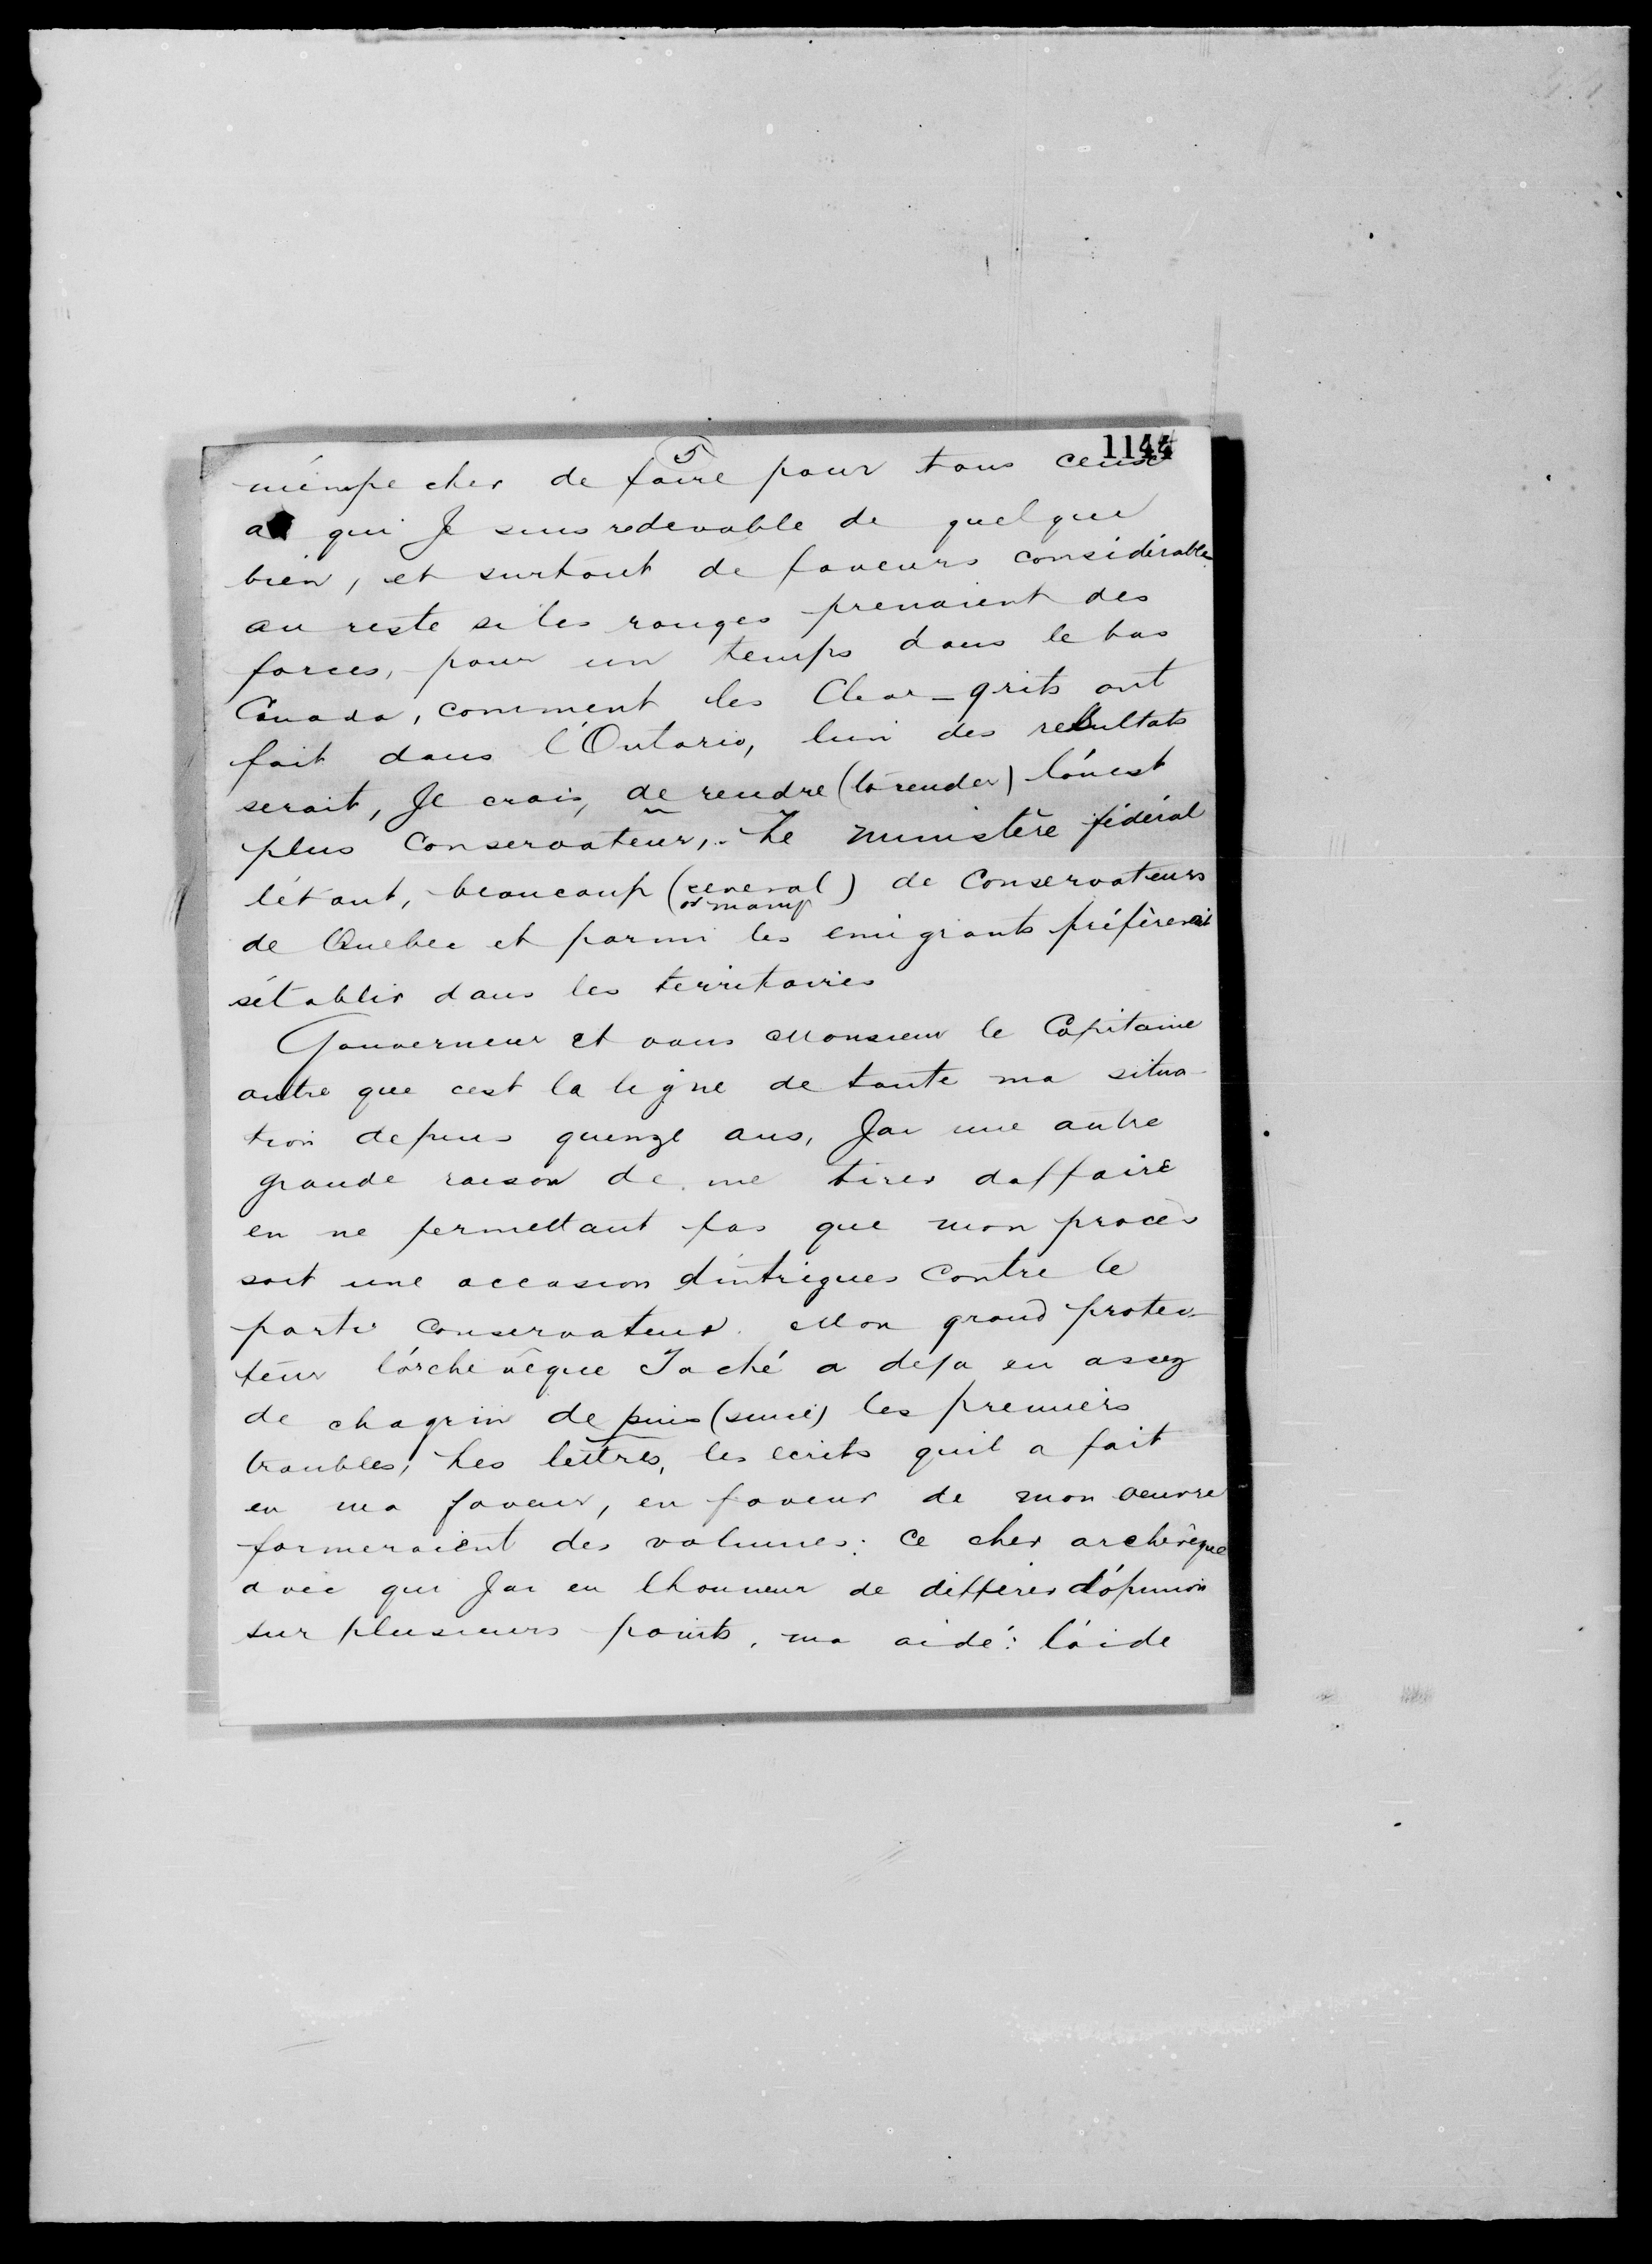 5
1144
m'empecher de faire pour tous ceux
a qui Je suis redevable de quelque
bien, et surtout de faveurs considérable
au reste si les rouges prenaient des
forces, pour un temps dans le bas
Canada, comment les Clear-grits ont
fait dans l'Ontario, lun des resultats
serait, Je crois, de rendre (to render) l'ouest
plus Conservateur,. Le ministère fédéral
létant, beaucoup (several or many) de Conservateurs
de Quebec et parmi les emigrants préfèrerait
s'établir dans les territoires
Gouverneur et vous Monsieur le Capitaine
autre que cest la ligne de toute ma situa-
tion depuis quenze ans, Jai une autre
grande raison de me tirer daffaire
en ne permettant pas que mon procès
soit une occasion d'intrigues Contre le
parti Conservateur. Mon grand protec-
teur l'archevêque Taché a deja eu assez
de chagrin depuis (since) les premiers
troubles, Les lettres, les ecrits quil a fait
en ma faveur, en faveur de mon oeuvre
formeraient des volumes: Ce cher archevêque
avec qui Jai eu lhonneur de différer d'opinion
sur plusieurs points, ma aidé: l'aide